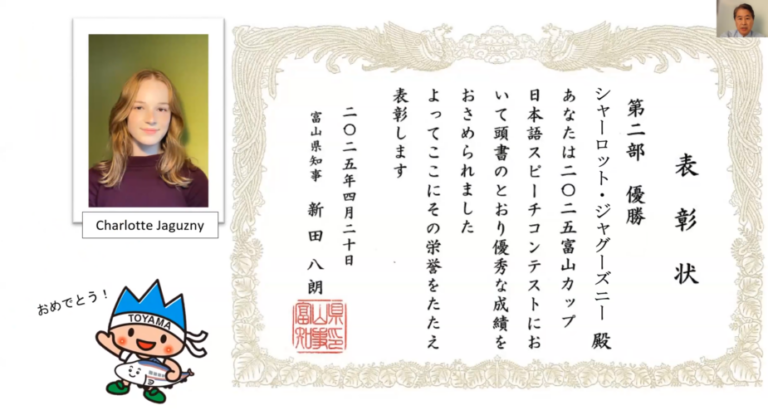 Charlotte Jaguzny
おめでとう！
TOYAMA
表彰状
第二部 優勝
シャーロット・ジャグーズニー 殿
あなたは二〇二五富山カップ
日本語スピーチコンテストにお
いて頭書のとおり優秀な成績を
おさめられました
よってここにその栄誉をたたえ
表彰します
二〇二五年四月二十日
富山県知事 新田八朗
富山県知事印